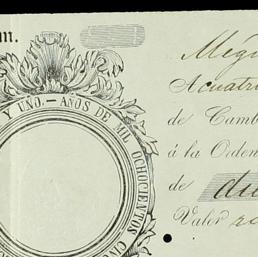 m.
Y UNO.—AÑOS DE MIL OCHOCIENTOS
Méji
A cuatro
de Camb
á la Orden
de du
Valor